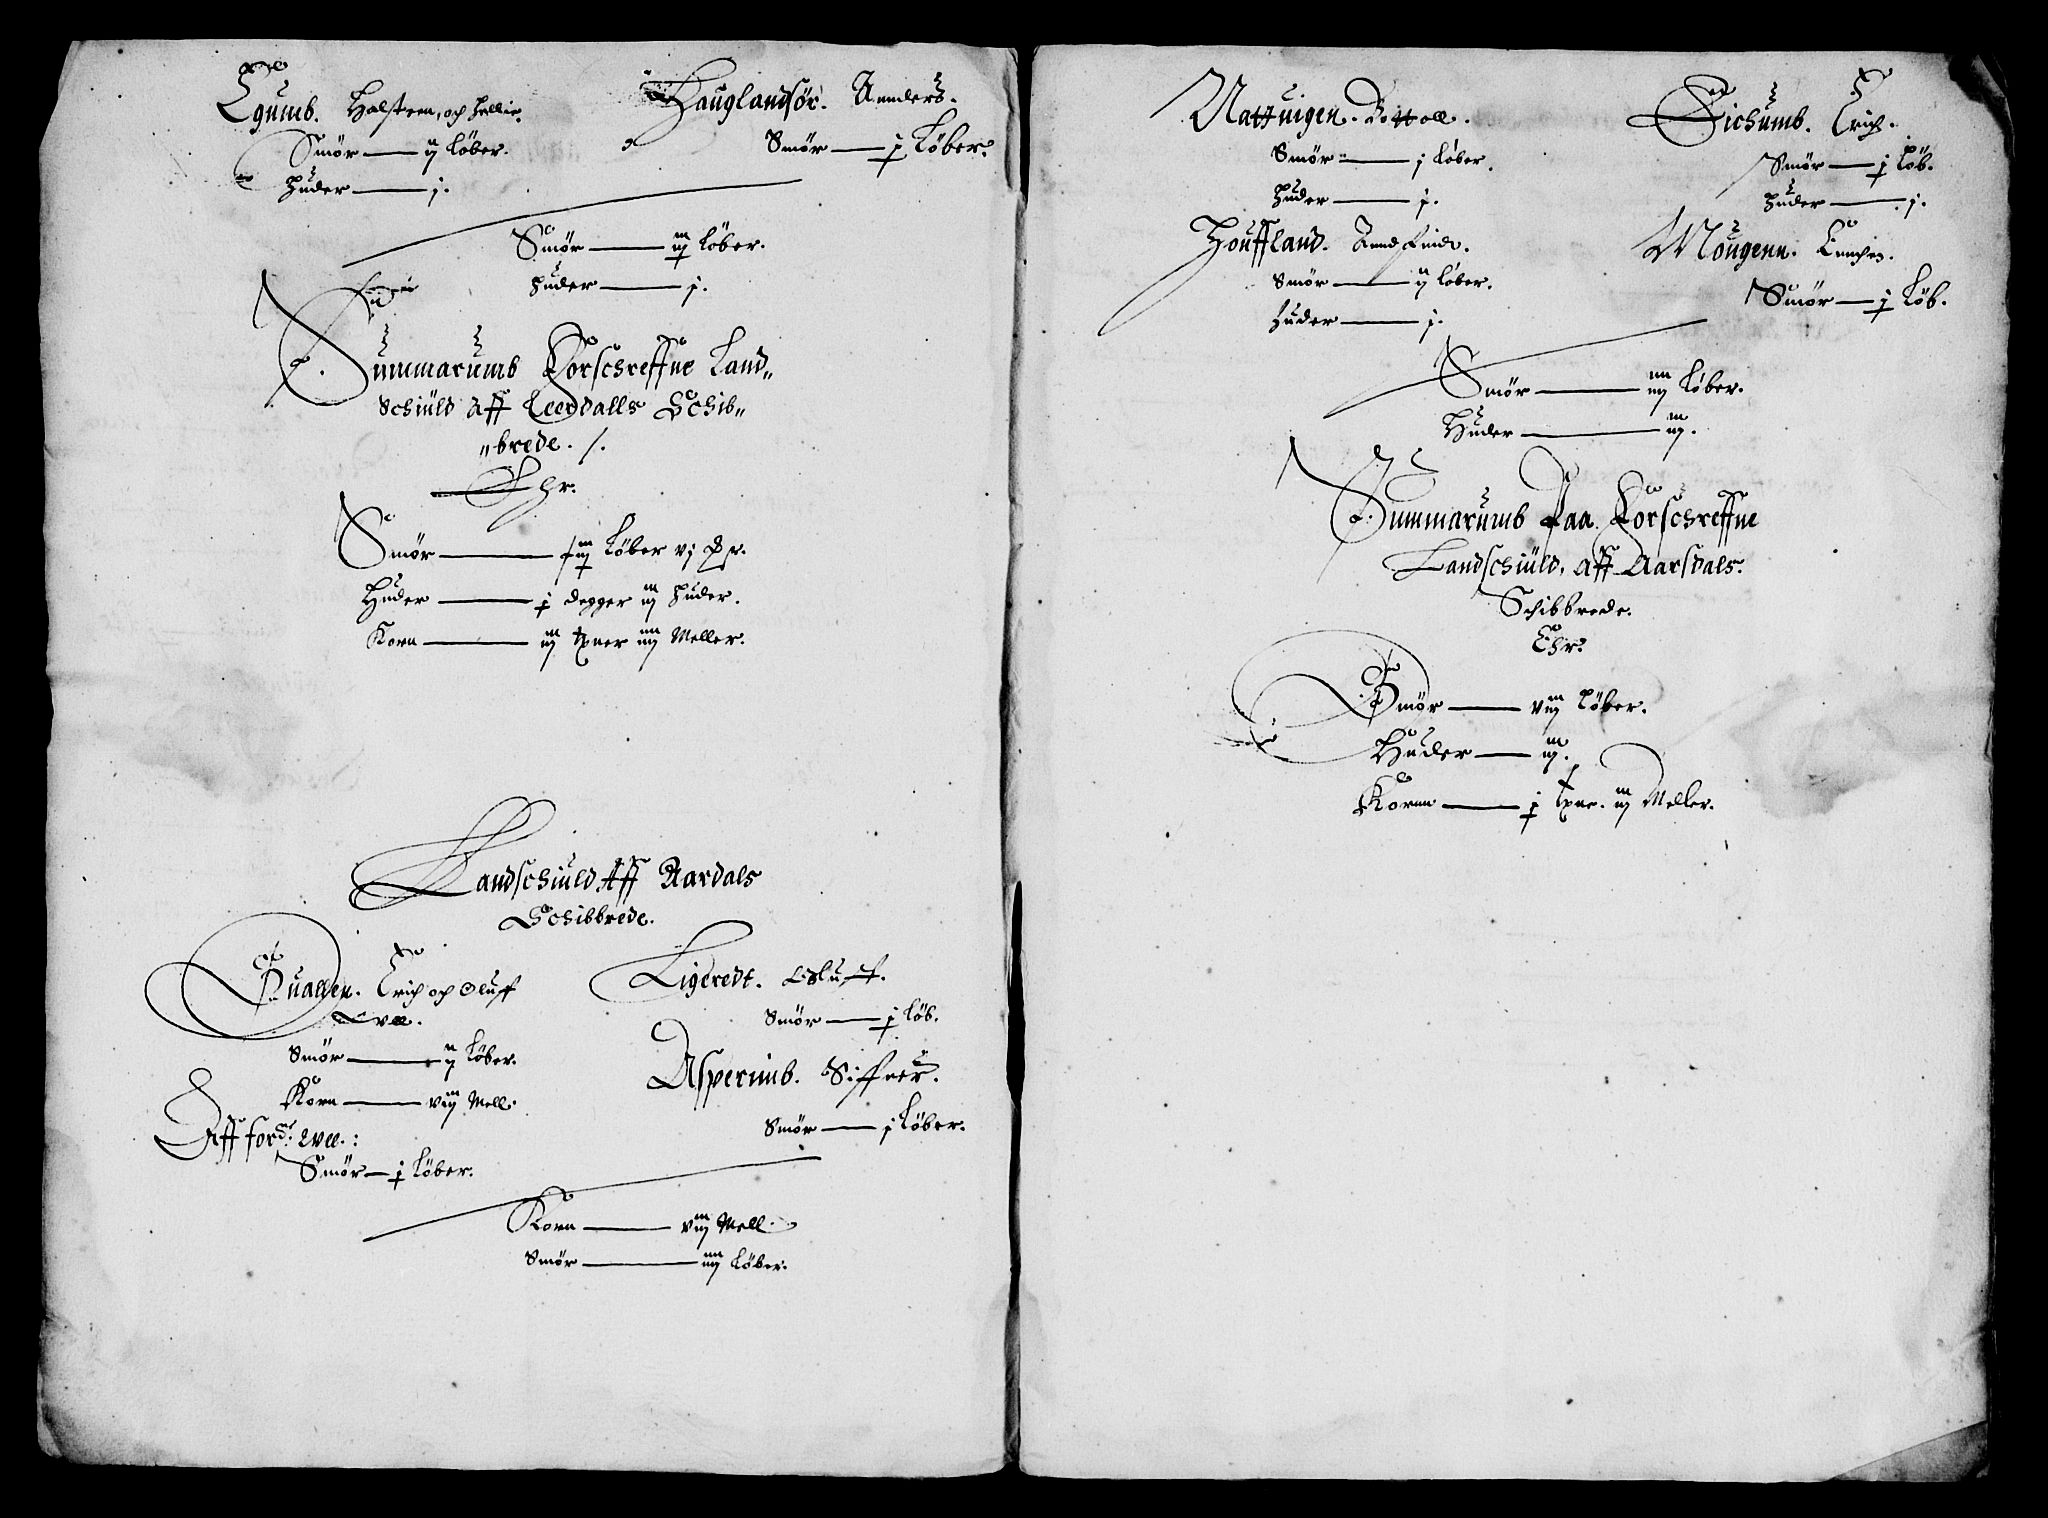 Egumb. Halsteen, och Hellie.
Smør — ij Løber.
Huder — j.
Hauglandsør. Annders.
Smør — j Løber.
Smør — iij Løber.
Huder — j.
Summarumb Forschreffne Land„
Schiuld Aff Leerdalls Schib„
„brede. /.
Ehr.
Smør — Løber vj Pr.
Huder — j degger iij Huder.
Korn — iij tpner iiij Meller.
Landschiuld Aff Aardals
Schibbrede.
Quallen. Erich och Oluff
Smør — ij Løber.
Korn — viij Mell.
Aff ford:
Smør — j Løber.
Ligeredt. Oluff.
Smør — j Løb.
Asperimb. Siffuer.
Smør — j Løber.
Korn — viij Mell.
Smør — iiij Løber.
Nattuigen. Bottoll.
Smør — j Løber.
Huder — j.
Houffland. Amd Find.
Smør — ij Løber.
Huder — j.
Sichumb. Erich.
Smør — j Løb.
Huder — j.
Mougenn.
Smør — j Løb.
Smør — iiij Løber.
Huder — iij.
Summarumb Paa Forschreffne
Landschiuld, Aff Aarsdals.
Schibbrede.
Ehr.
Smør — viij Løber.
Huder — iij.
Kornn — j tpne. iij Meller.